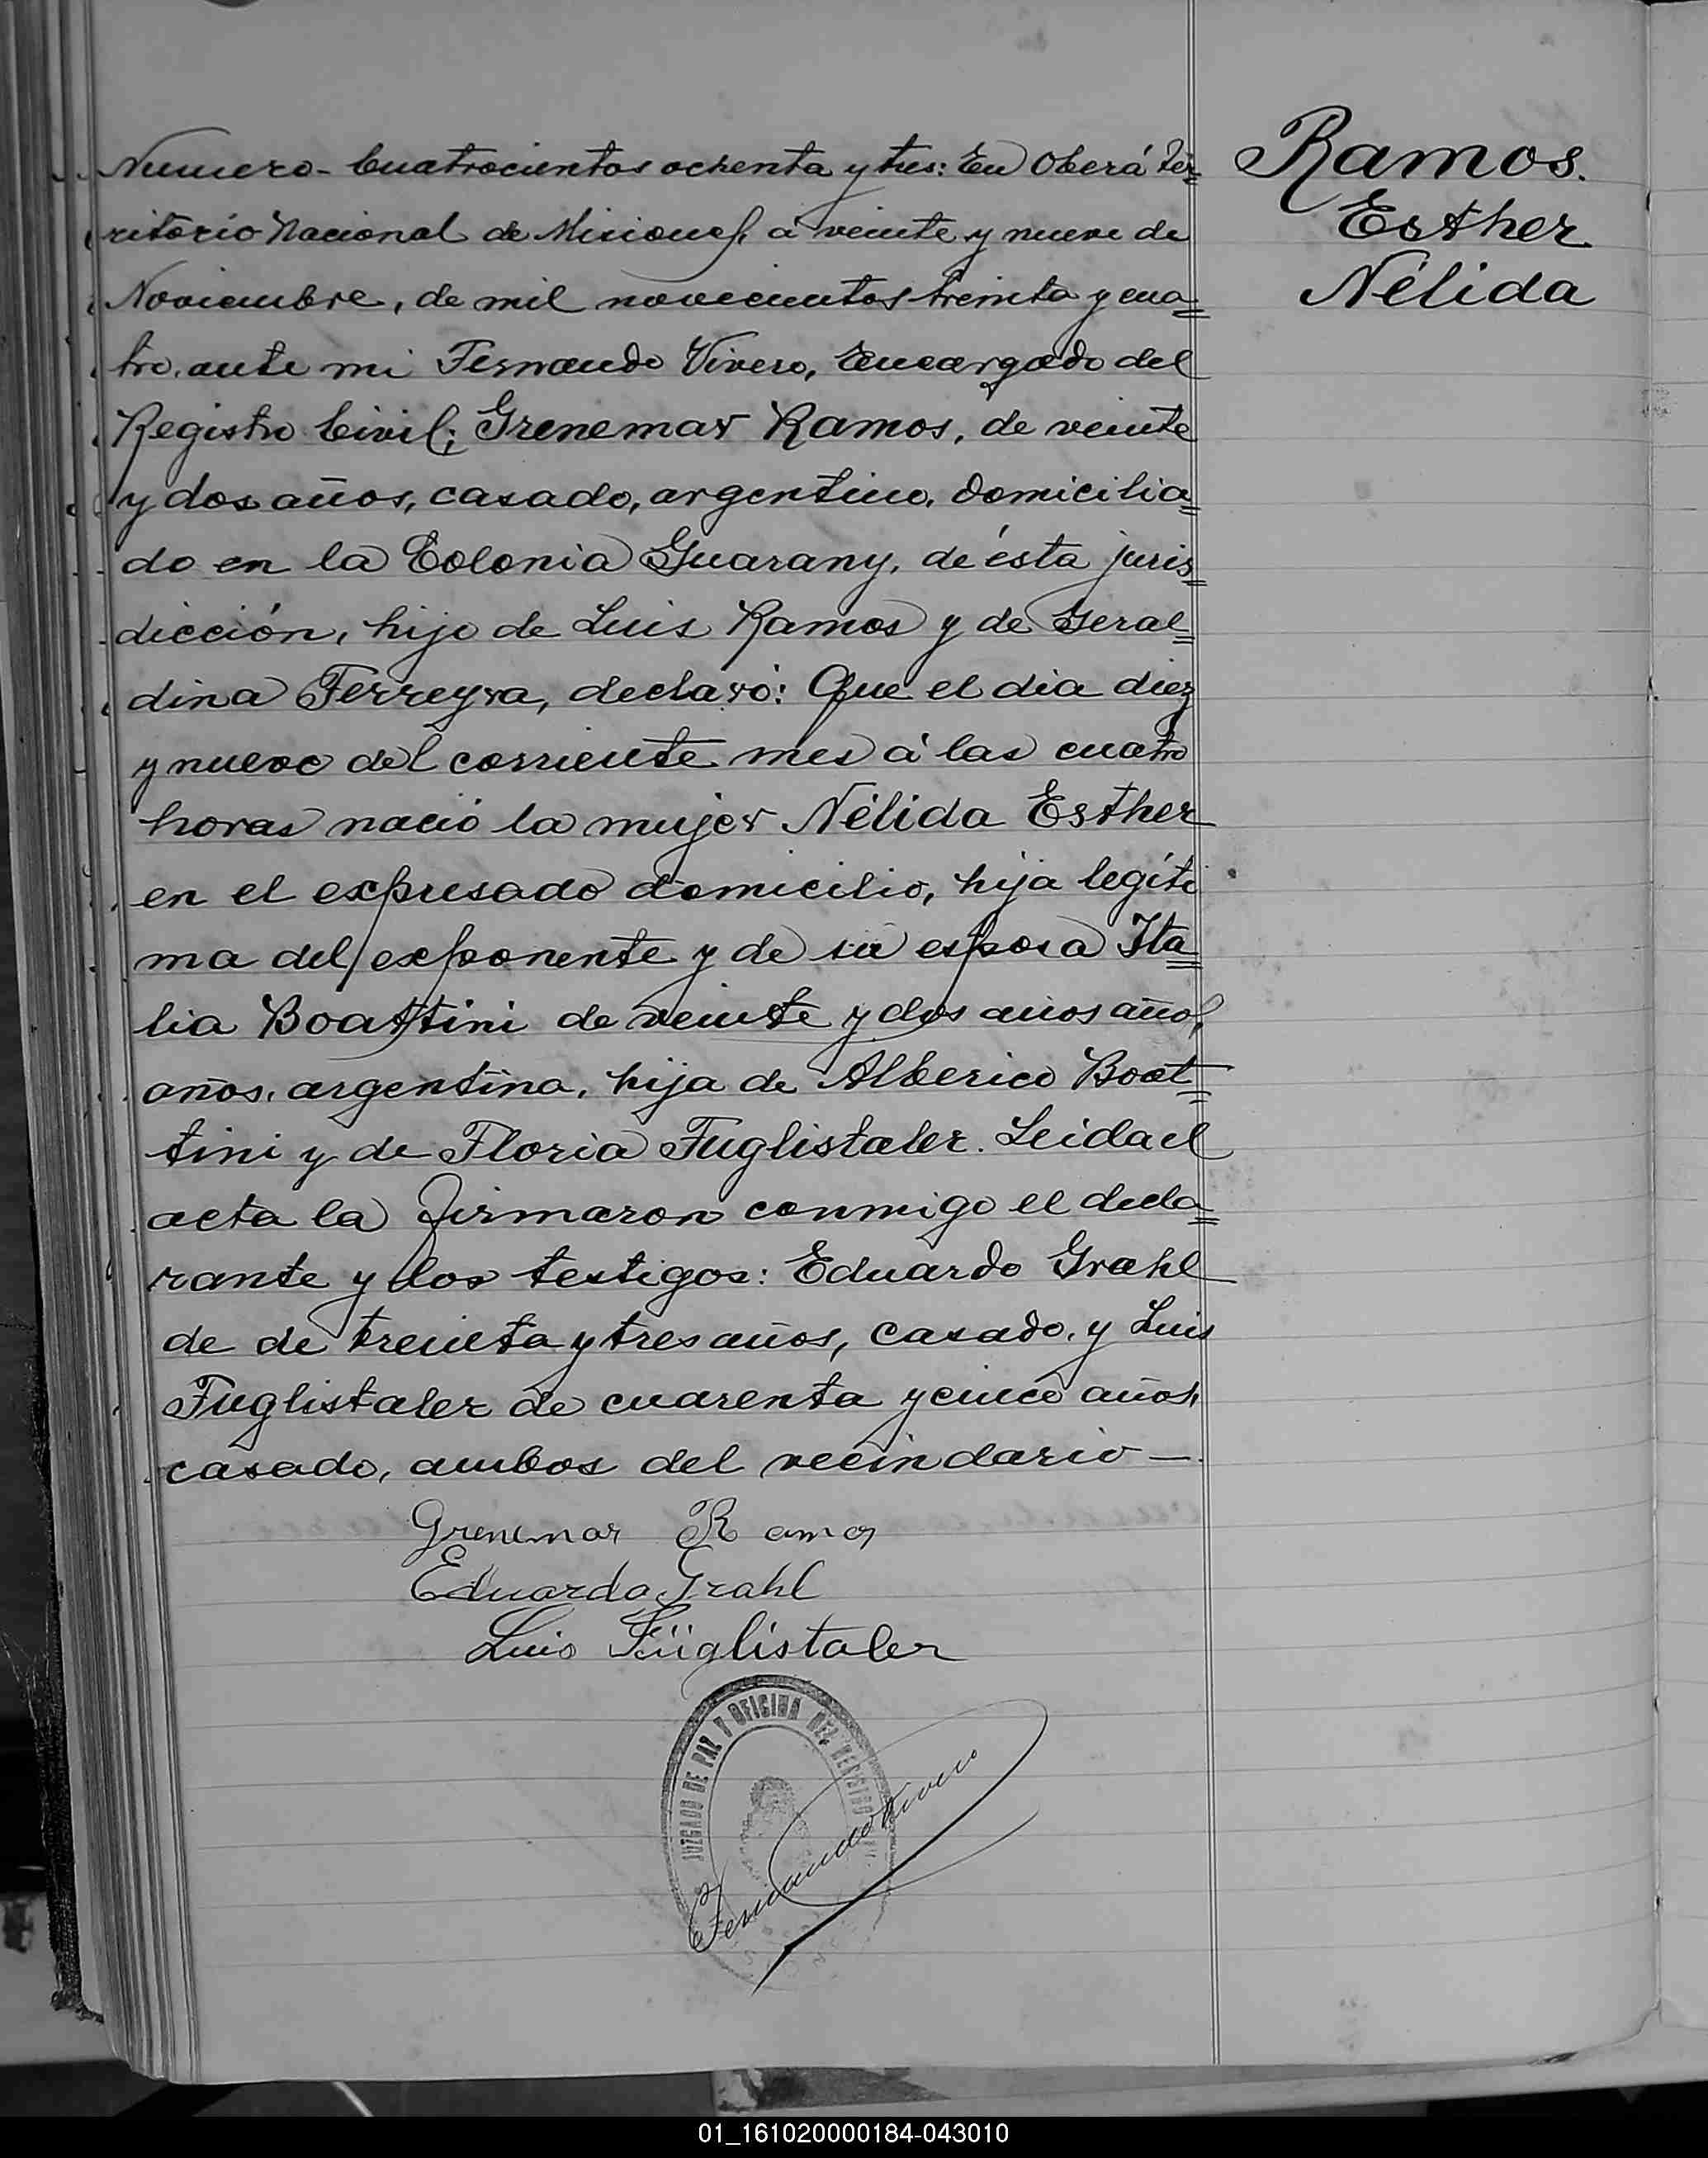 Numero - Cuatrocientos ochenta y tres: En Oberá Ter=
ritorio Nacional de Misiones, á veinte y nueve de
Noviembre, de mil novecientos treinta y cua=
tro, ante mi Fernando Vivero, Encargado del
Registro Civil; Grenemar Ramos, de veinte
y dos años, casado, argentino, domicilia=
do en la Colonia Guarany, de ésta juris=
dicción, hijo de Luis Ramos y de Geral=
dina Ferreyra, declaró: Que el dia diez
y nueve del corriente mes á las cuatro
horas nació la mujer Nélida Esther
en el expresado domicilio, hija legíti
ma del exponente y de su esposa Ita=
lia Boattini de veinte y dos años años,
años, argentina, hija de Alberico Boat=
tini y de Floria Fuglistaler. Leida el
acta la firmaron conmigo el decla=
rante y los testigos: Eduardo Grahl
de de treinta y tres años, casado, y Luis
Fuglistaler de cuarenta y cinco años,
casado, ambos del vecindario —
Grenemar Ramos
Eduardo Grahl
Luis Füglistaler
JUZGADO DE PAZ Y OFICINA DEL REGISTRO CIVIL
Fernando Vivero
Ramos.
Esther
Nélida
01_161020000184-043010